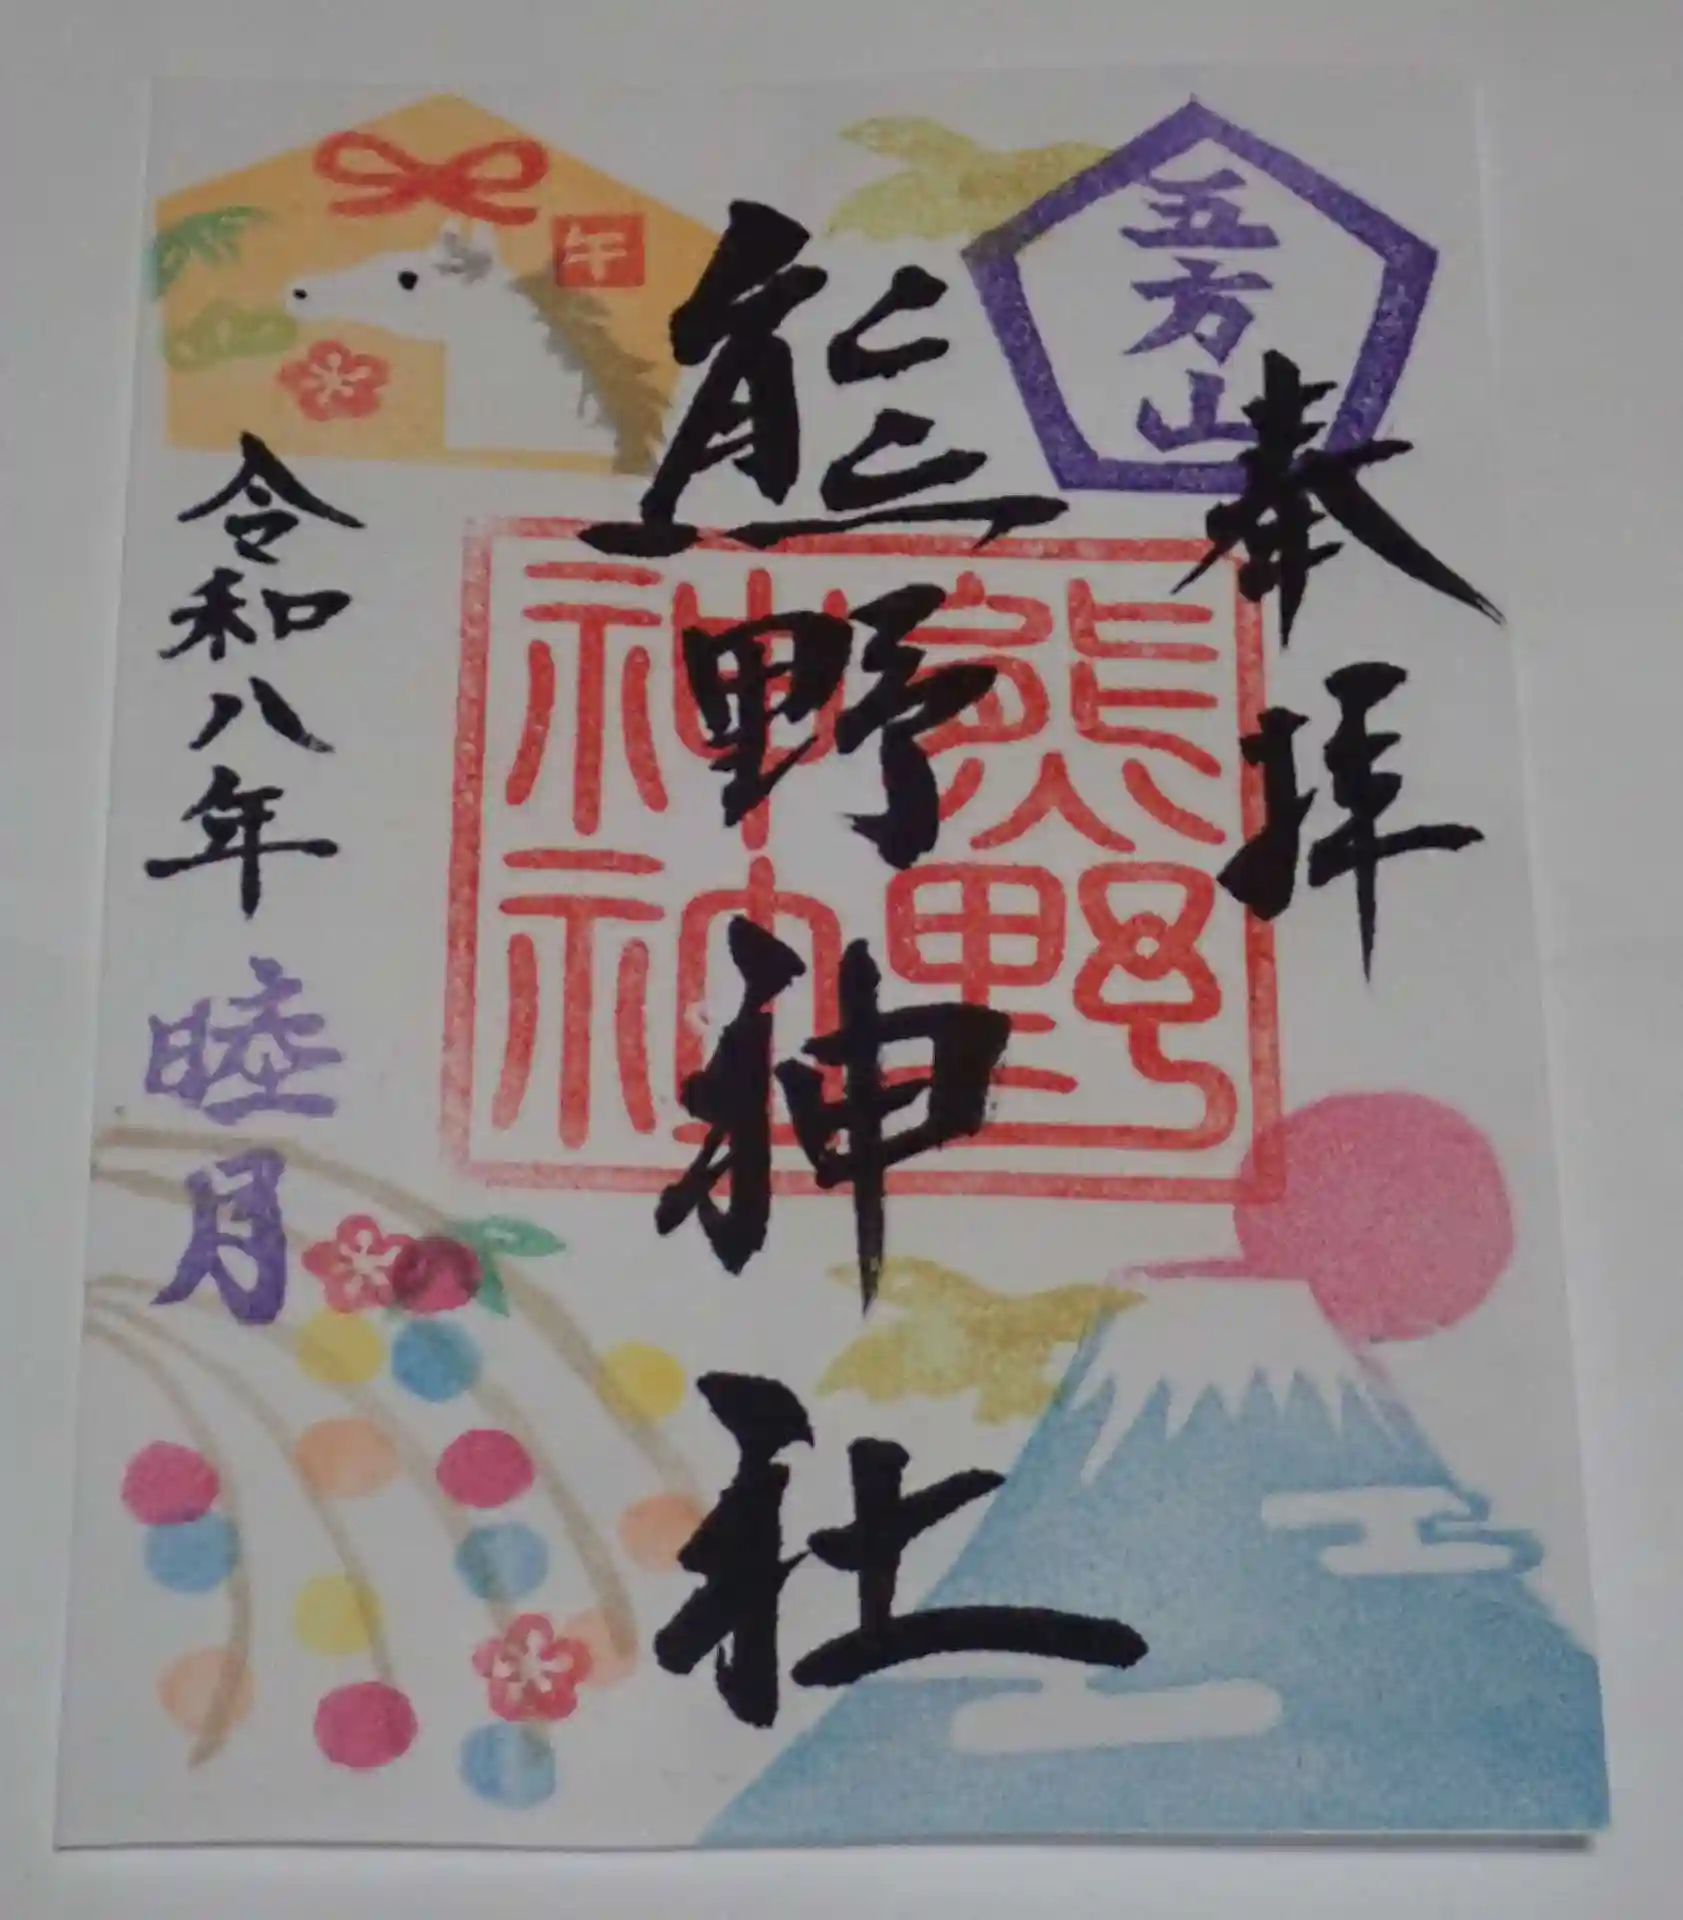 五方山
奉拝
熊野神社
熊野
神社
午
令和八年 睦月